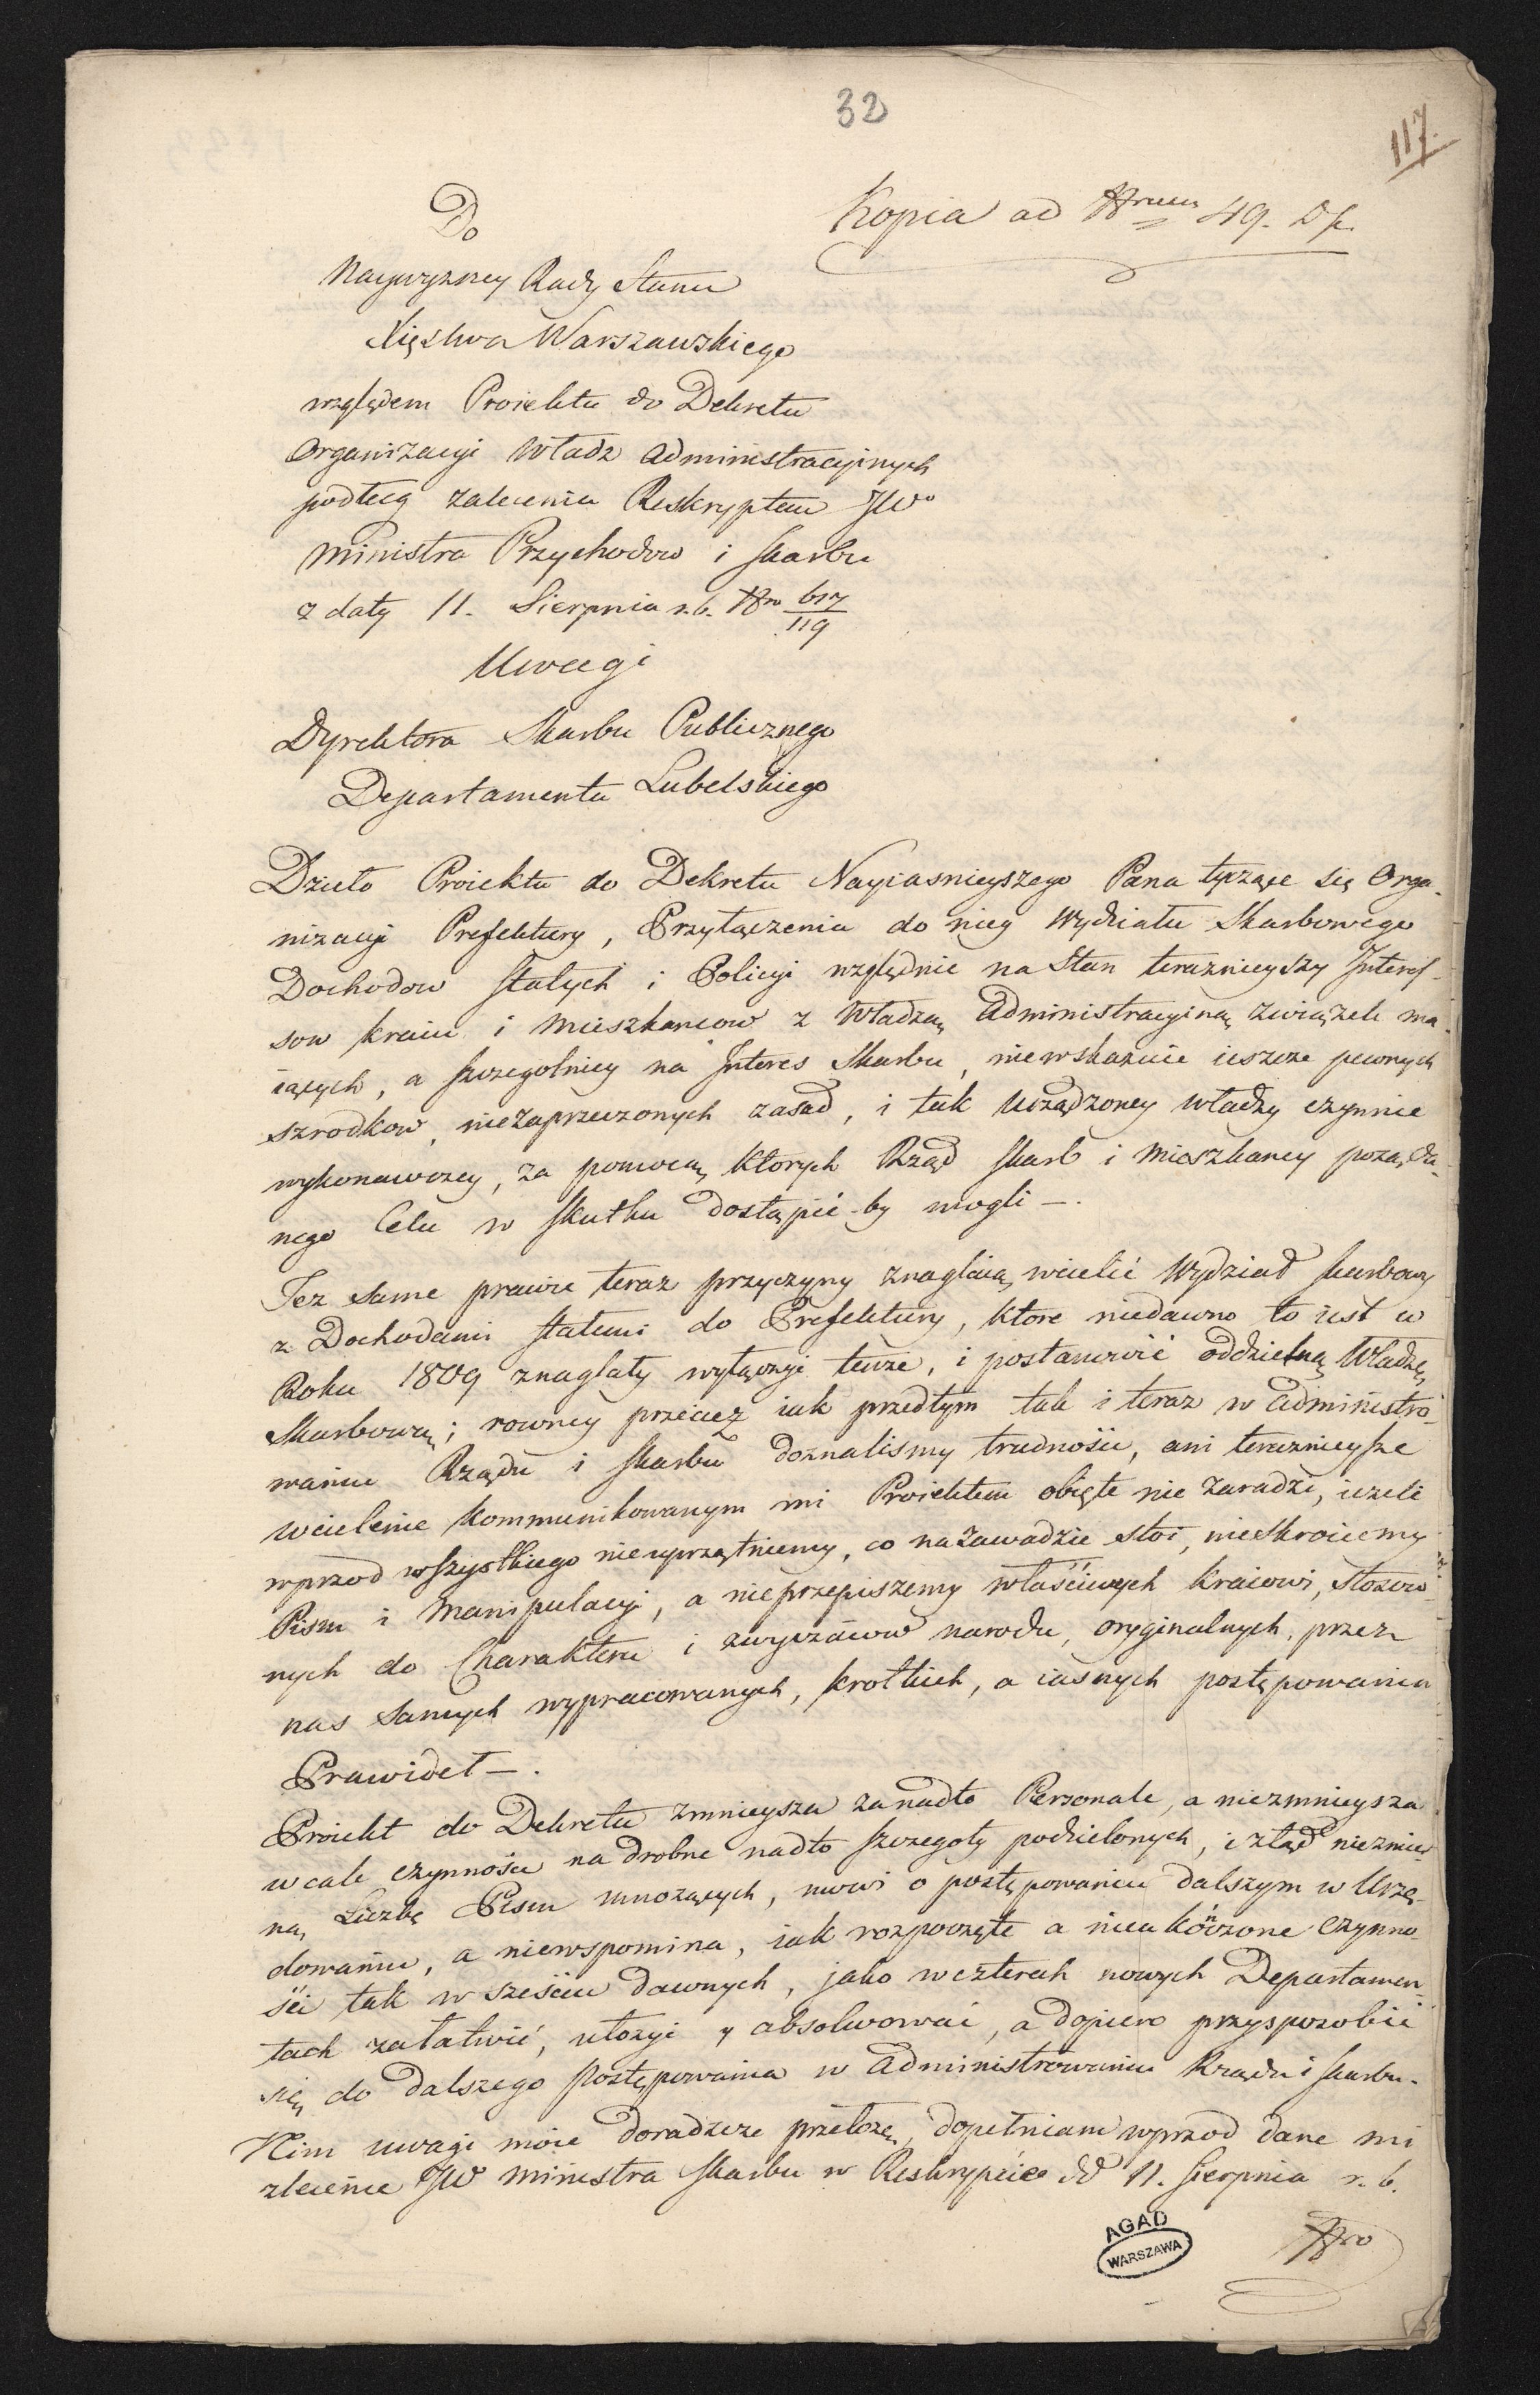 32
117.
Kopia ad Nrum 49. Df.
Do
Naywyzney Rady Stanu
Xięstwa Warszawskiego
względem Proiektu do Dekretu
Organizacyi Władz Administracyinych
podług zalecenia Reskryptem JWo
Ministra Przychodow i Skarbu
z daty 11. Sierpnia r. b. Nro 617/119
Uwagi
Dyrektora Skarbu Publicznego
Departamentu Lubelskiego
Dzieło Proiektu do Dekretu Nayiasnieyszego Pana tyczące się Orga-
nizacyi Prefektury, Przyłączenia do niey Wydziału Skarbowego
Dochodow stałych i Policyi względnie na Stan teraznieyszy Interes-
sow kraiu i Mieszkancow z Władzą Administracyiną związek ma-
iących, a szczegolniey na Interes Skarbu, niewskazuie ieszcze pewnych
szrodkow, niezaprzeczonych zasad, i tak urządzoney władzy czynnie
wykonawczey, za pomocą ktorych Rząd Skarb i Mieszkancy pożąda-
nego Celu w skutku dostąpić by mogli —.
Też same prawie teraz przyczyny znaglaią wcielić Wydział Skarbowy
z Dochodami stałemi do Prefektury, ktore niedawno to iest w
Roku 1809 znaglały wyłączyć tenże, i postanowić oddzielną Władzę
Skarbową; rowney przecież iak przedtym tak i teraz w Administro-
waniu Rządu i Skarbu doznalismy trudności, ani teraznieysze
wcielenie kommunikowanym mi Proiektem obięte nie zaradzi, ieżeli
wprzod wszystkiego nieuprzątniemy, co na zawadzie stoi, nieskrociemy
Pism i Manipulacyi, a nieprzepiszemy właściwych kraiowi, stosow-
nych do Charakteru i zwyczaiow narodu, oryginalnych, przez
nas samych wypracowanych, krotkich, a iasnych postępowania
Prawideł —.
Proiekt do Dekretu zmnieysza zanadto Personale, a niezmnieysza
wcale czynności na drobne nadto szczegoły podzielonych, i ztąd niezmier-
ną Liczbę Pism mnożących, mowi o postępowaniu dalszym w Urzę-
dowaniu, a niewspomina, iak rozpoczęte a nieukończone czynno-
ści tak w sześciu dawnych, jako w czterech nowych Departamen-
tach załatwić, ułożyć y absolwować, a dopiero przysposobić
się do dalszego postępowania w Administrowaniu Rządu i Skarbu.
Nim uwagi moie doradcze przełożę, dopełniam wprzod dane mi
zlecenie JW Ministra Skarbu w Reskrypcie dd 11. Sierpnia r. b.
Nro
AGAD
WARSZAWA